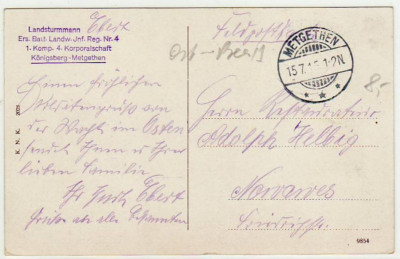 Landsturmmann Ebert
Ers. Batl. Landw. Inf. Reg. Nr. 4
1. Komp. 4. Korporalschaft
Königsberg-Metgethen
Feldpost
Ost-Preuß
METGETHEN
15.7.15. 1-2N
8,-
Einen fröhlichen
von
der Wacht im Osten
sendet Ihnen u Ihrer
lieben Familie
Ihr Ebert
Grüße an alle Bekannten
Herrn Restaurateur
Adolph Helbig
Nowawes
K. N. K. 2028
9854